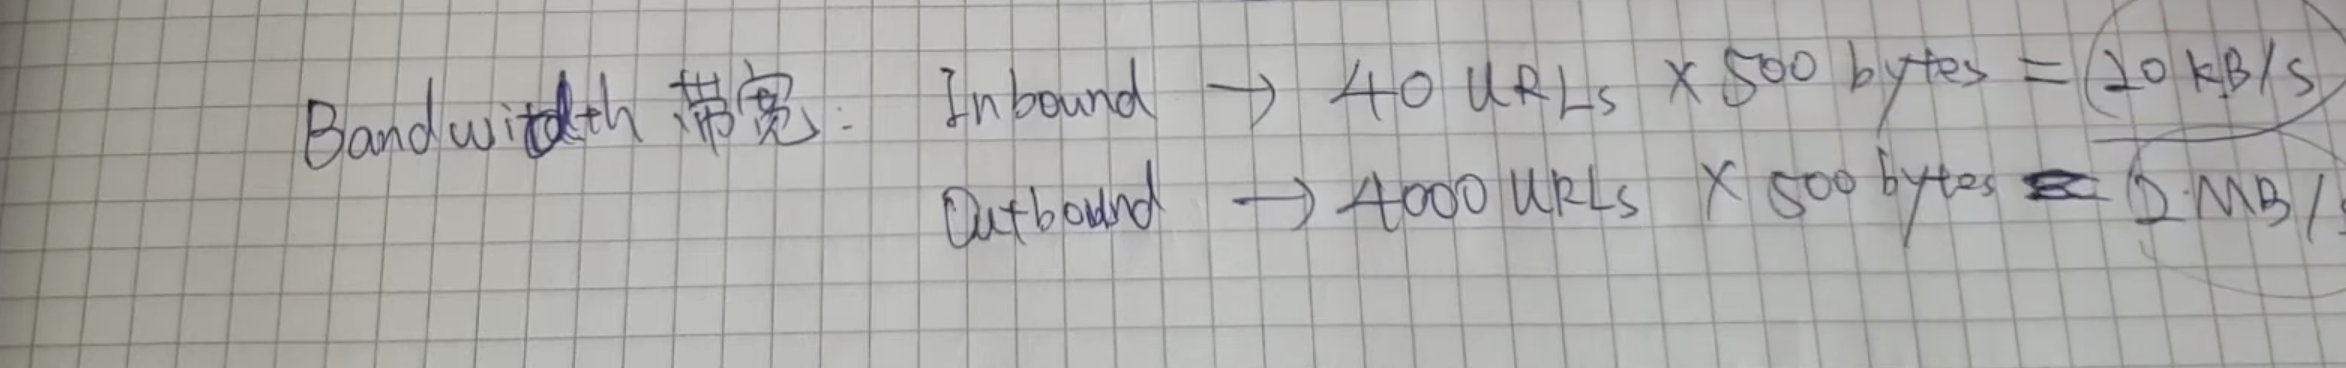 Bandwidth 带宽: Inbound → 40 URLs × 500 bytes = 20 KB/s
Outbound → 4000 URLs × 500 bytes = 2 MB/s